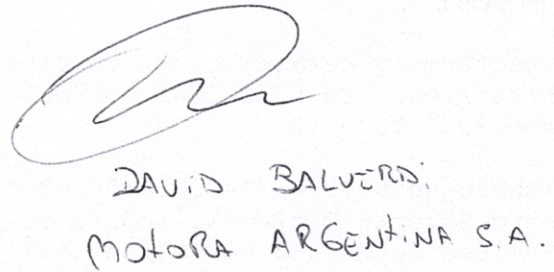 DAViD BALVERDi
MOtORA ARGENtiNA S.A.